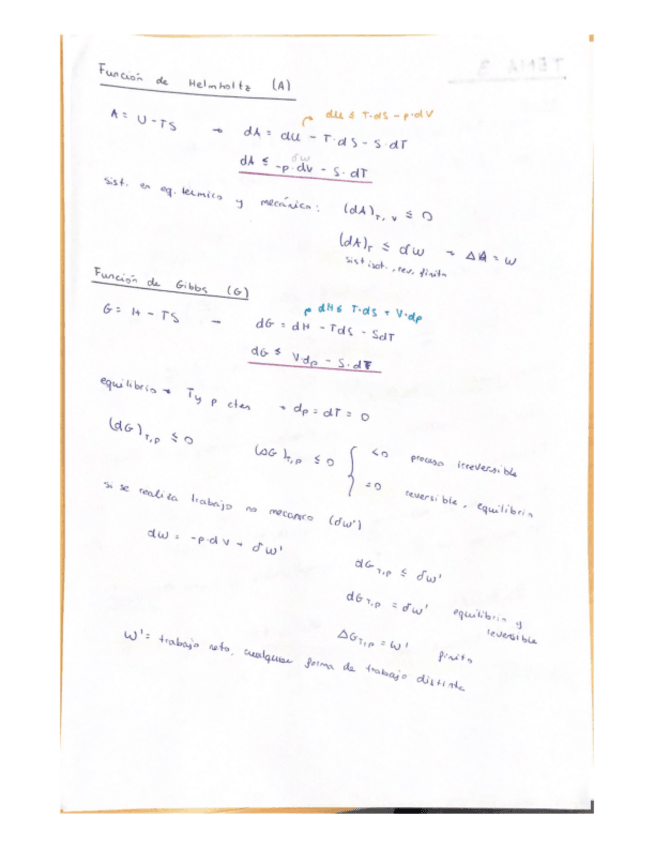 TEMA 3
Función de Helmholtz (A)
dU ≤ T·dS - p·dV
A = U - TS → dA = dU - T·dS - S·dT
δw
dA ≤ -p·dV - S·dT
sist. en eq. termico y mecánico: (dA)T,V ≤ 0
(dA)T ≤ δw → ΔA = w
sist isot., rev. finito
Función de Gibbs (G)
dH ≤ T·dS + V·dp
G = H - TS → dG = dH - TdS - SdT
dG ≤ V·dp - S·dT
equilibrio → T y p ctes → dp = dT = 0
(dG)T,p ≤ 0 (ΔG)T,p ≤ 0 { <0 proceso irreversible
=0 reversible, equilibrio
si se realiza trabajo no mecanico (δw')
dw = -p·dV + δw'
dG T,p ≤ δw'
dG T,p = δw' equilibrio y
reversible
ΔG T,p = w' finito
w' = trabajo neto, cualquier forma de trabajo distinta